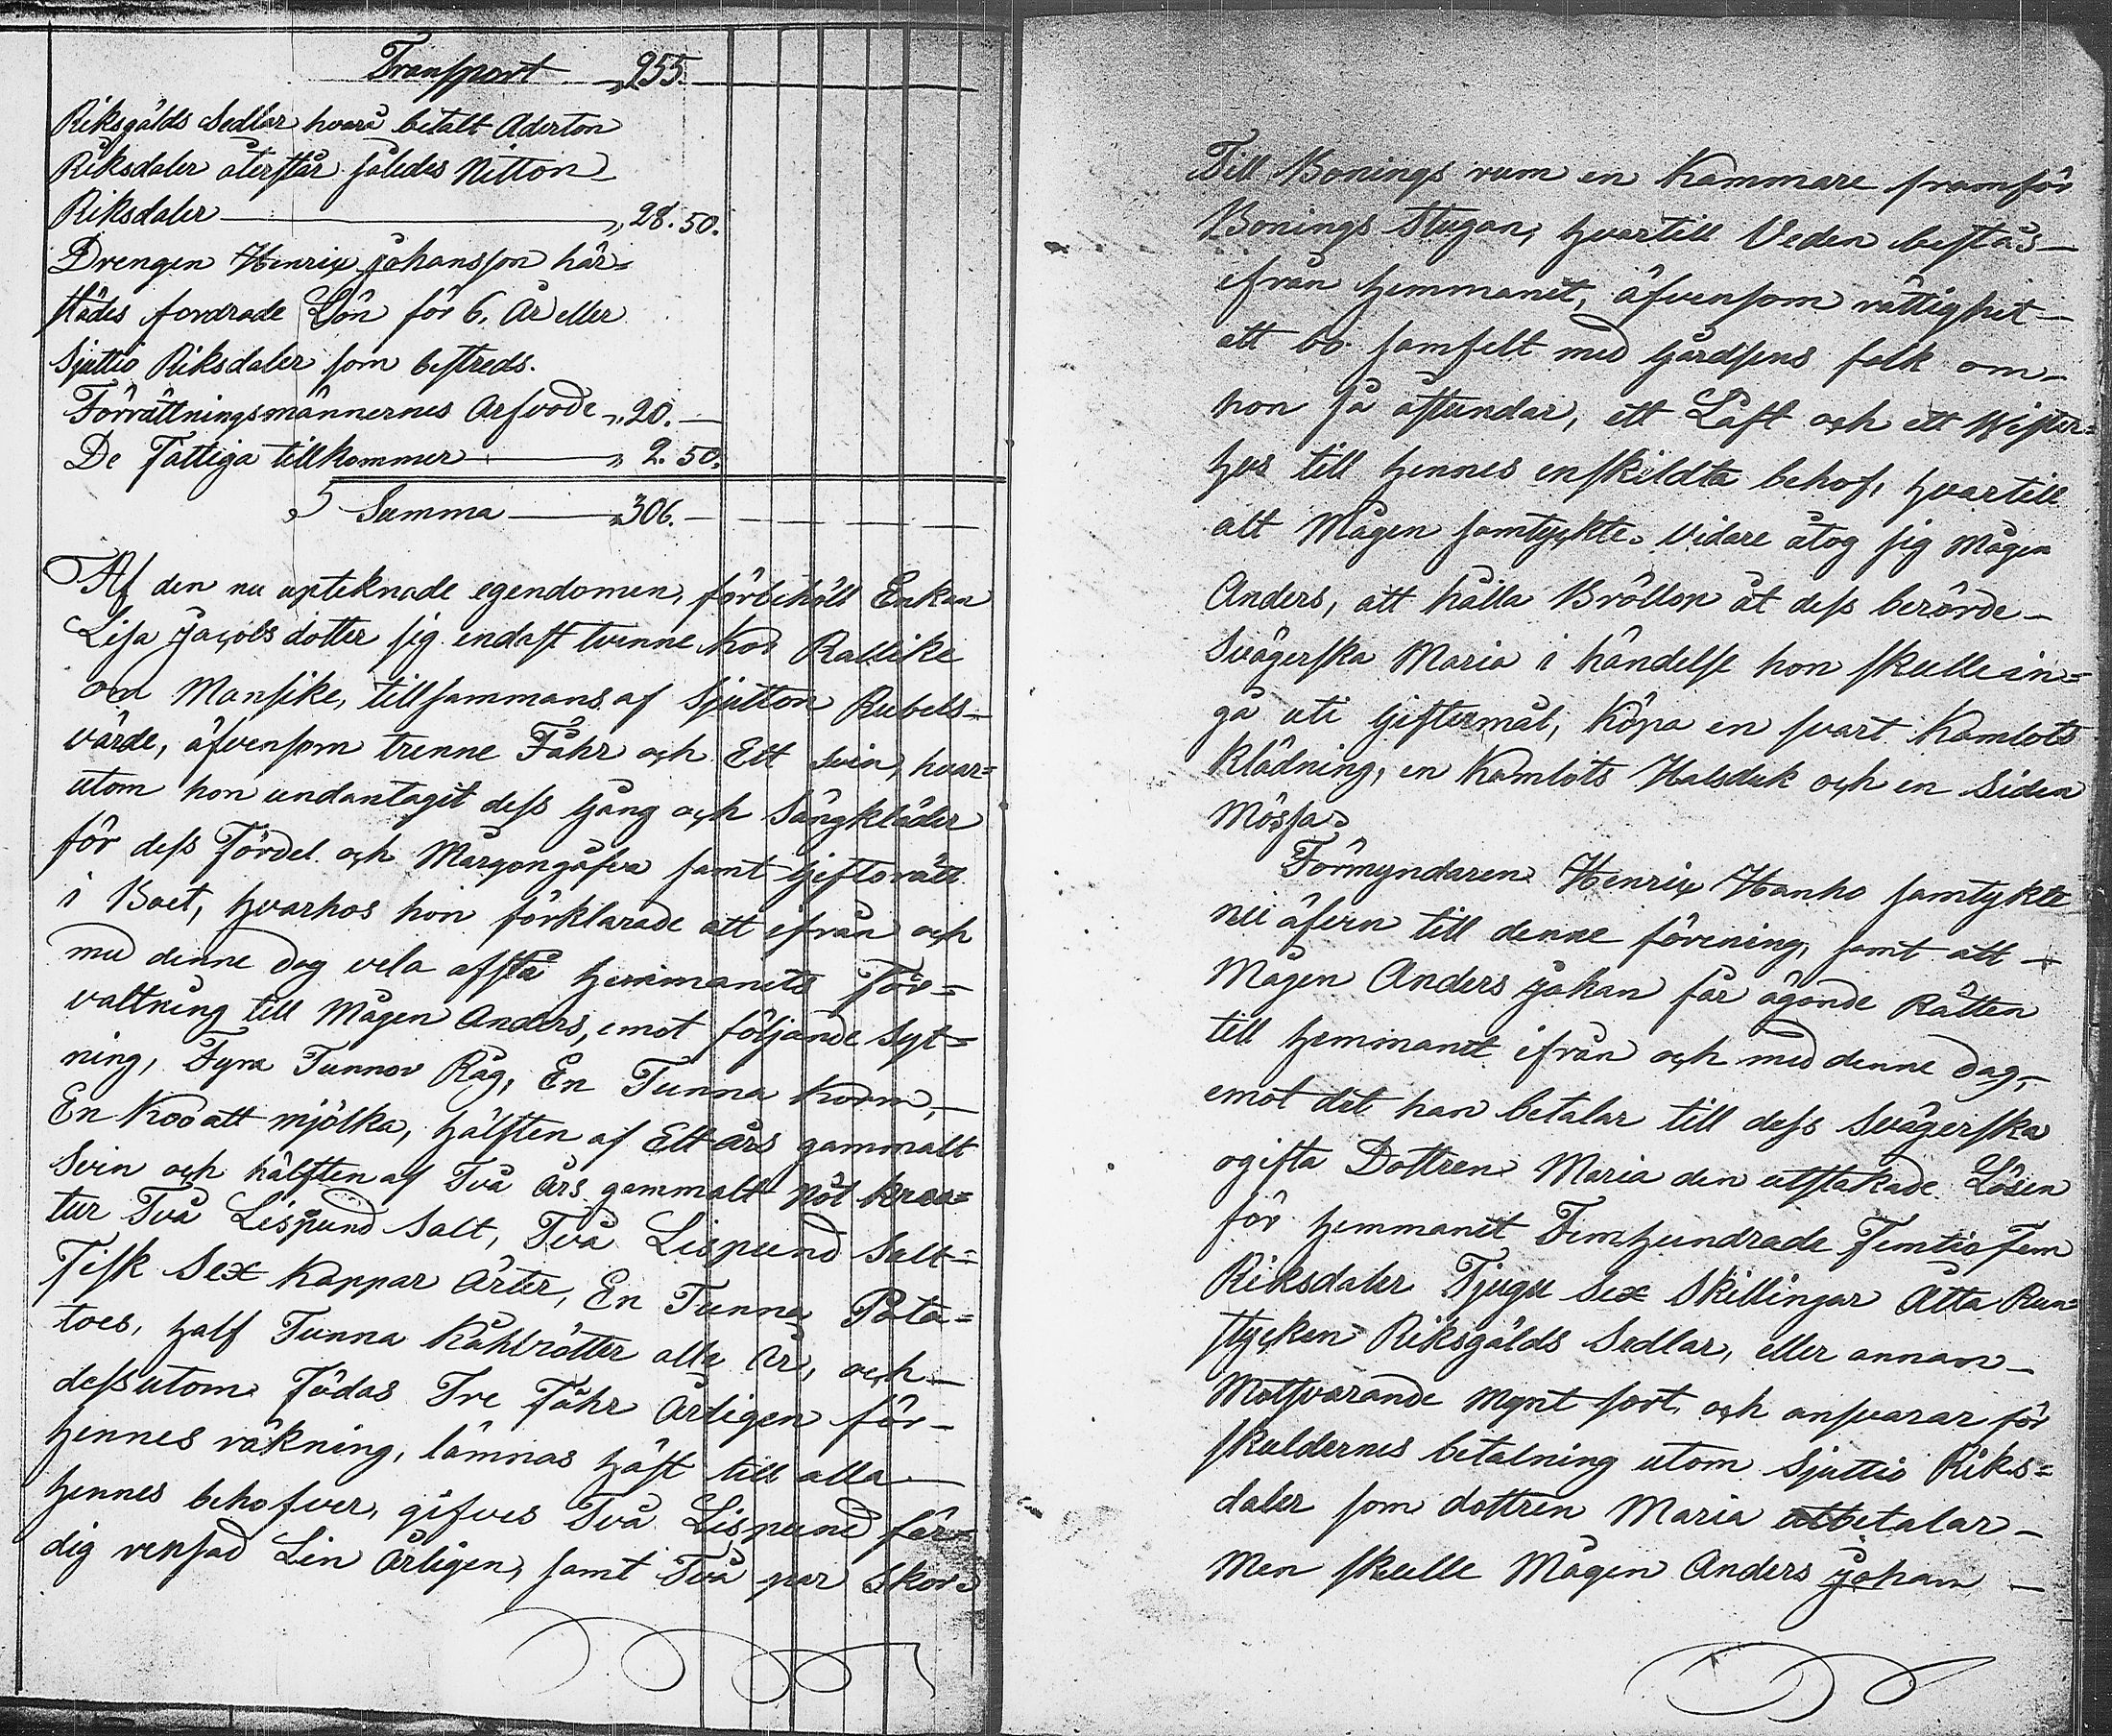 Transport „ 255.
Riksgälds Sedlar hvarå betalt Aderton
Riksdaler återstår således Nitton
Riksdaler „ 28. 50.
Drengen Henrix Johansson här=
städes fordrade Lön för 6. År eller
Sjuttio Riksdaler som bestreds.
Förrättningsmännernes Arfvode „ 20. —
De Fattiga tillkommer „ 2. 50.
Summa „ 306. —
Af den nu upteknade egendomen, förbehöll Enkan
Lisa Jacobsdotter sig endast tvenne Kor Rallike
om Mansike, tillsammans af Sjutton Rubels
värde, äfvensom trenne Fåhr och Ett svin, hvar=
utom hon undantagit dess Gång och Sängkläder
för dess Fördel och Morgongåfva samt Giftorätt
i Boet, hvarhos hon förklarade att ifrån och
med denne dag vela afstå hemmanets För=
valtning till Mågen Anders, emot följande Syt=
ning, Fyra Tunnor Råg, En Tunna Korn,
En Koo att mjölka, hälften af Ett års gammalt
Svin och hälften af Två års gammalt Nöt krea=
tur Två Lispund Salt, Två Lispund Salt=
Fisk Sex Kappar Ärter, En Tunna Pota=
toes, half Tunna Kåhlrötter alla År, och
dessutom Födas Tre Fåhr Årligen för
hennes räkning, lämnas häst till alla
hennes behofver, gifves Två Lispund fär=
dig rensad Lin Årligen, samt Två par Skor.
Till Bonings rum en Kammare framför
Bonings Stugan, hvartill Veden bestås
ifrån hemmanet, äfvensom rättighet
att bo samfelt med Gårdsens folk om
hon så åstundar, ett Låft och ett Wister=
hus till hennes enskildta behof, hvartill
alt Mågen samtyckte. Vidare åtog sig Mågen
Anders, att hålla Bröllop åt dess berörde
Svägerska Maria i händelse hon skulle in=
gå uti Giftermål, Köpa en svart Kamlots
Klädning, en Kamlots Halsduk och en Siden
Mössa.
Förmyndaren Henrix Hanho samtykte
nu äfven till denne förening, samt att
Mågen Anders Johan får ägande Rätten
till hemmanet ifrån och med denne dag,
emot det han betalar till dess Svägerska
ogifta Dottren Maria den utstakade Lösen
för hemmanet Femhundrade Femtio Fem
Riksdaler Tjugu Sex Skillingar Åtta Run=
stycken Riksgälds Sedlar, eller annan
Motsvarande Mynt sort, och ansvarar för
skuldernes betalning utom Sjuttio Riks=
daler som dottren Maria utbetalar
Men skulle Mågen Anders Johan